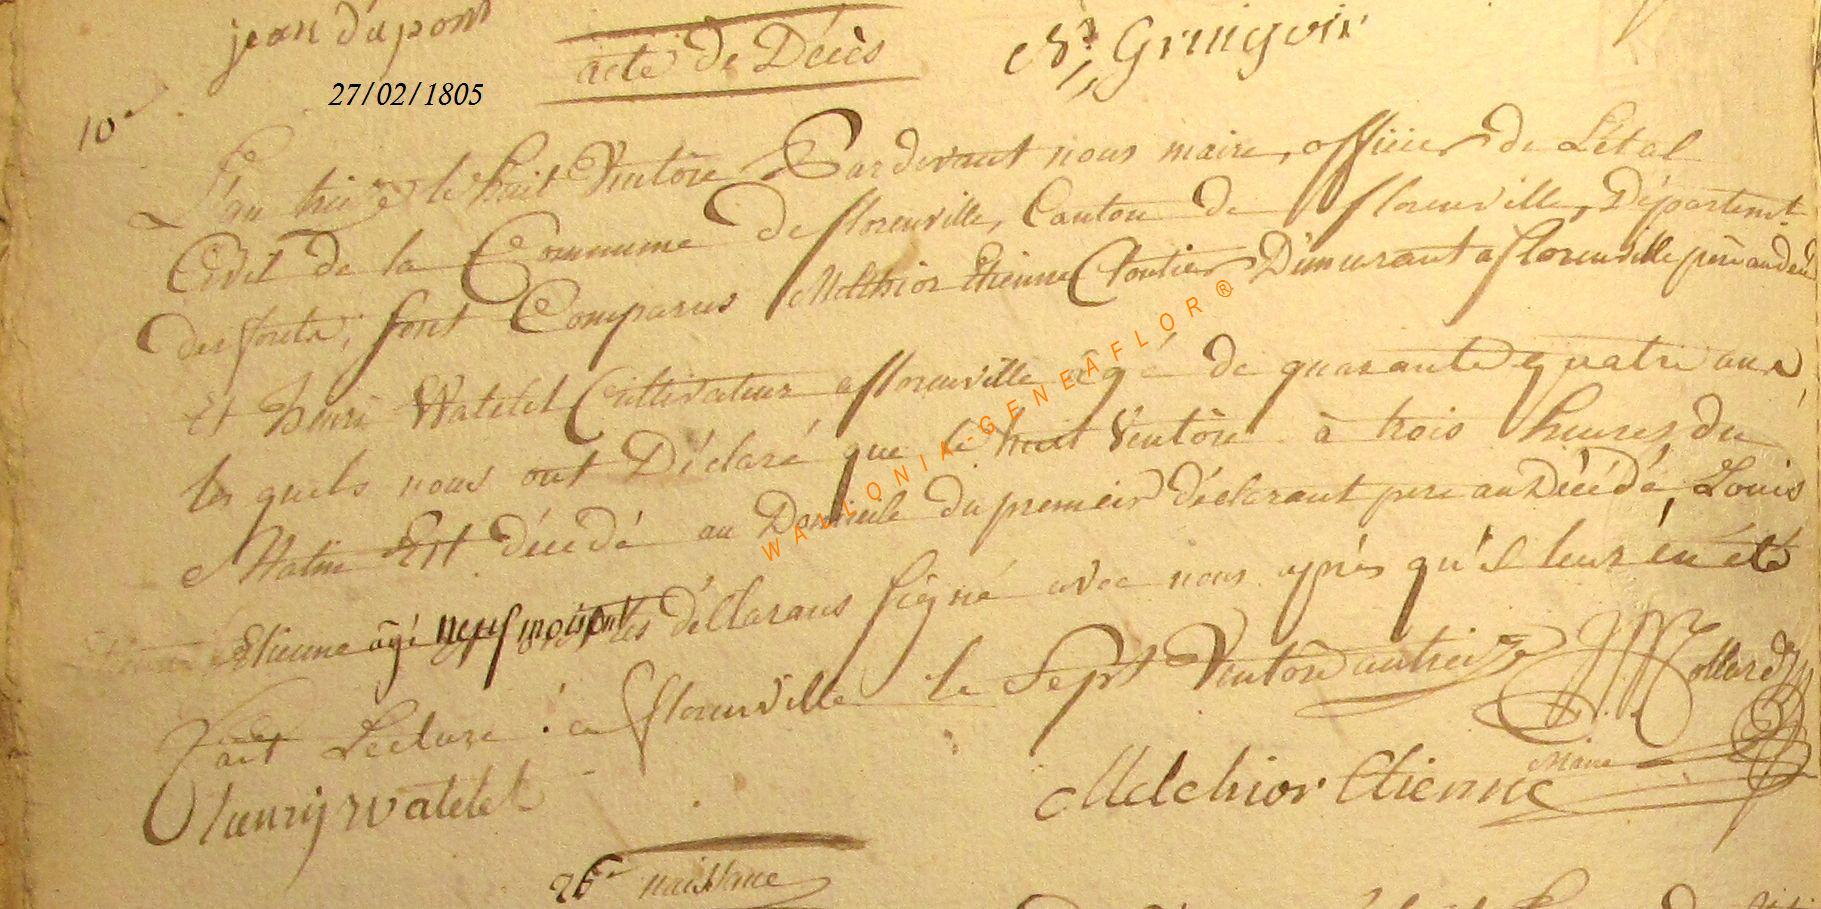 jean dupont
acte de Décès
Gringoir
27/02/1805
10e
L'an treize le huit Ventôse Pardevant nous maire, officier de L'état
Civil de la Commune de florenville, Canton de florenville, Département
des forets, sont Comparus Melchior Etienne Cloutier Demeurant a florenville père au
Et henri Watelet Cultivateur a florenville âgé de quarante quatre ans,
les quels nous ont Déclaré que le huit Ventôse à trois heures du
Matin Est décédé au Domicile du premier déclarant pere au Décédé, Louis
Etienne âgé neuf mois ont les déclarans signé avec nous après qu'il leur en été
fait Lecture : a florenville le Sept Ventôse an treize
JM Collard
maire
henrij watelet
Melchior Etienne
26e naissance
WALLONIA-GENEAFLOR®